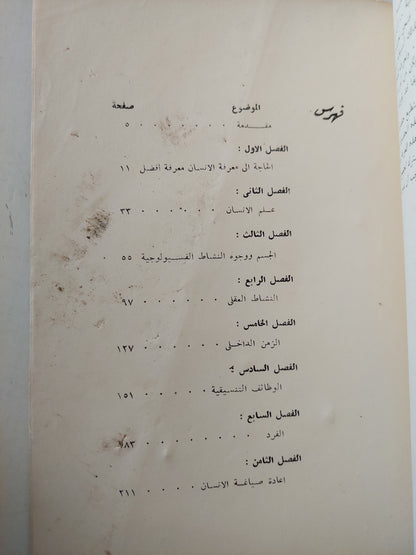 فهرس
الموضوع صفحة
مقدمة . . . . . . . . ٥
الفصل الاول :
الحاجة الى معرفة الانسان معرفة أفضل ١١
الفصل الثانى :
علم الانسان . . . . . . ٣٣
الفصل الثالث :
الجسم ووجوه النشاط الفسيولوجية ٥٥
الفصل الرابع :
النشاط العقلى . . . . . . ٩٧
الفصل الخامس :
الزمن الداخلى . . . . . . ١٣٧
الفصل السادس :
الوظائف التنسيقية . . . . . ١٥١
الفصل السابع :
الفرد . . . . . . . . ١٨٣
الفصل الثامن :
اعادة صياغة الانسان . . . . . ٢١١